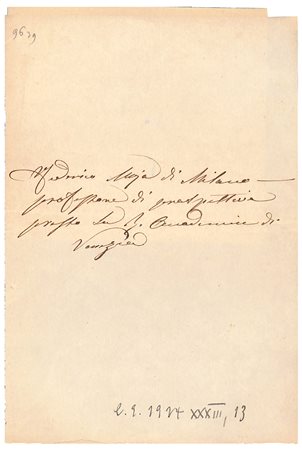 9629
Federico Moja di Milano
professore di prospettiva
presso la R. Accademia di
Venezia
L. I. 1924 XXXIII, 13